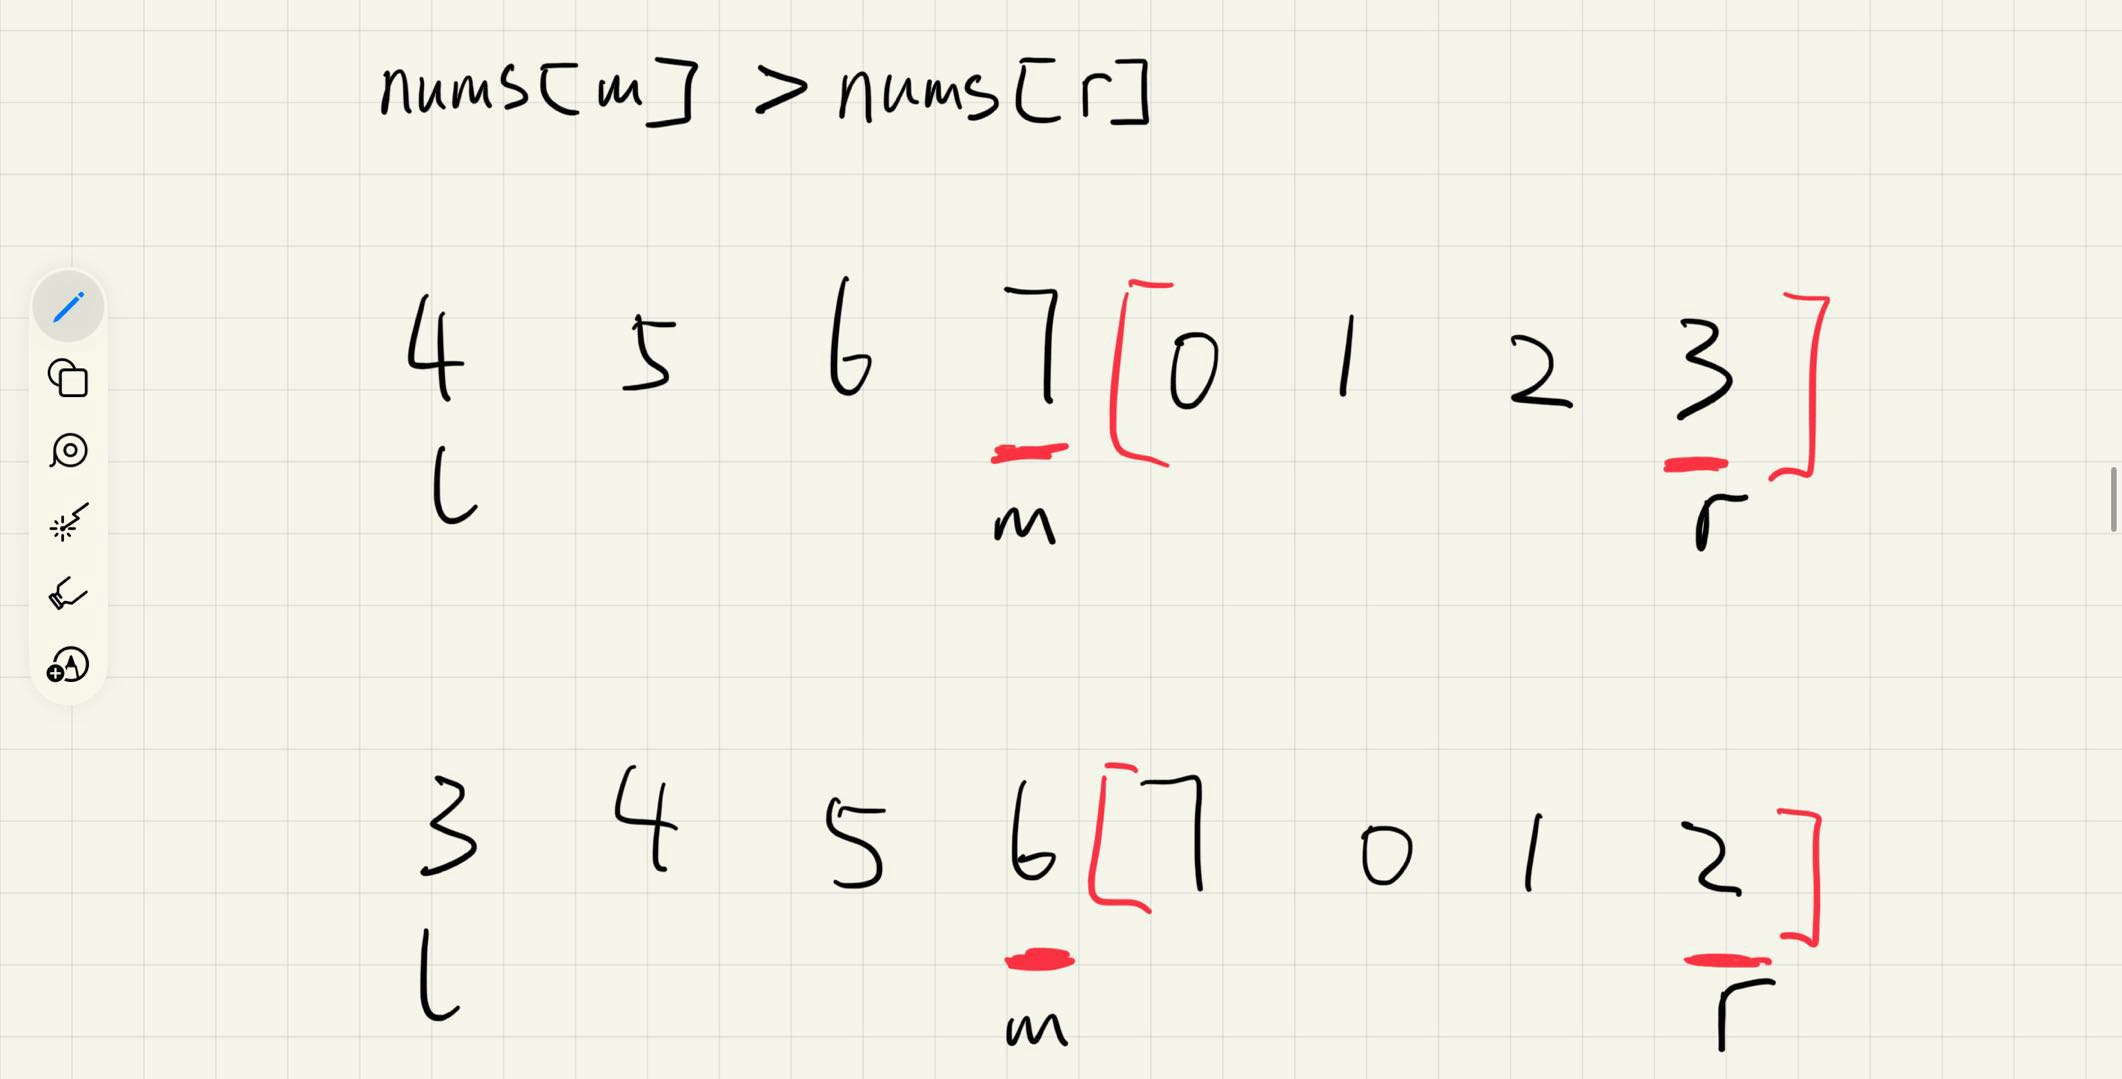 nums[m] > nums[r]
4 5 6 7 [0 1 2 3]
l m r
3 4 5 6 [7 0 1 2]
l m r